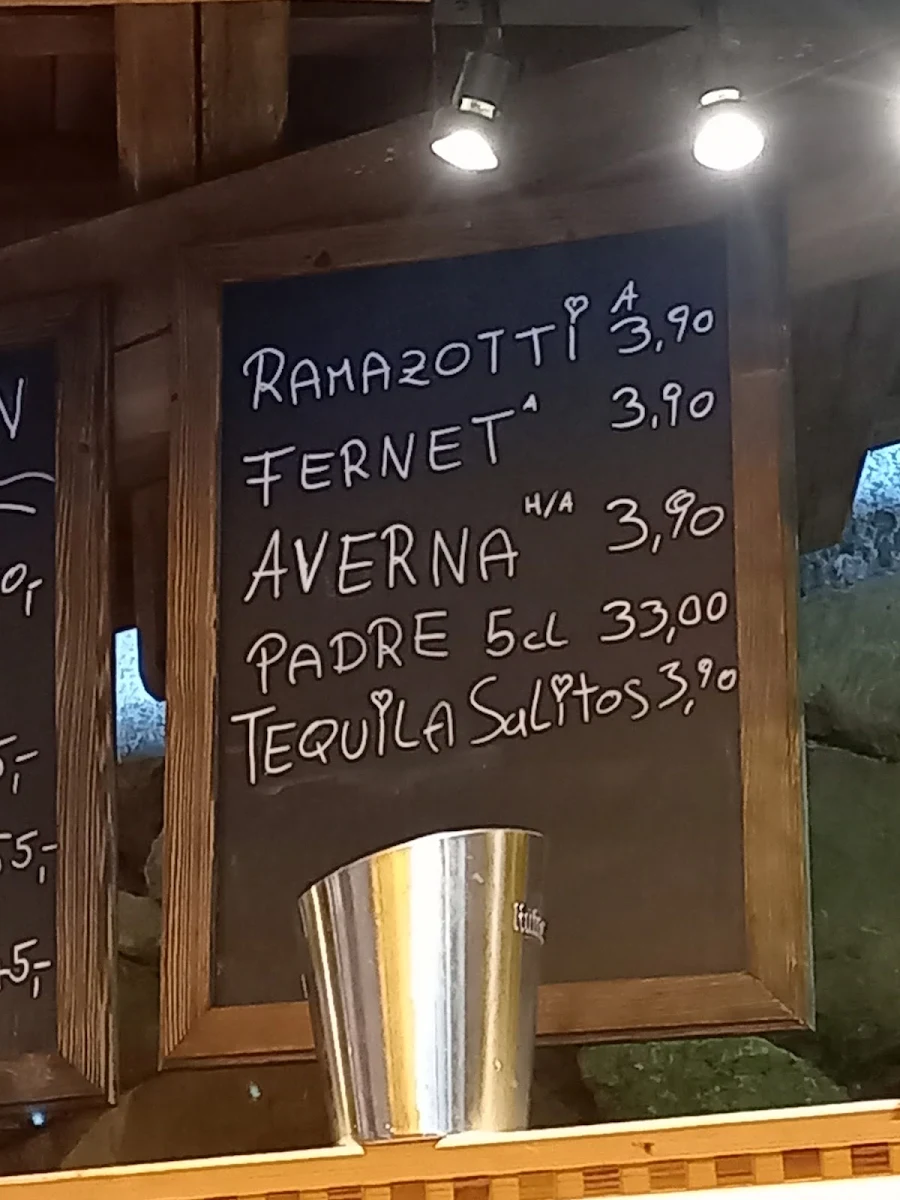 RAMAZOTTI A 3,90
FERNET A 3,90
AVERNA H/A 3,90
PADRE 5cl 33,00
TEQUILA SALITOS 3,90
N
0,-
5,-
55,-
5,-